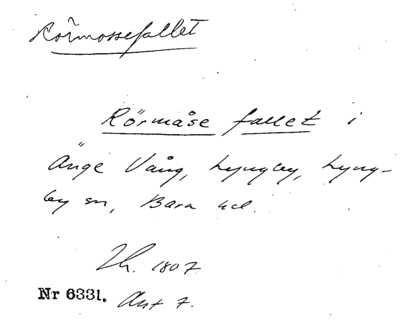 Rörmossefallet
Rörmåse fallet i
Änge Vång, Lyngby, Lyng-
by sn, Bara hd.
Th. 1807
Nr 6331. Akt 7.